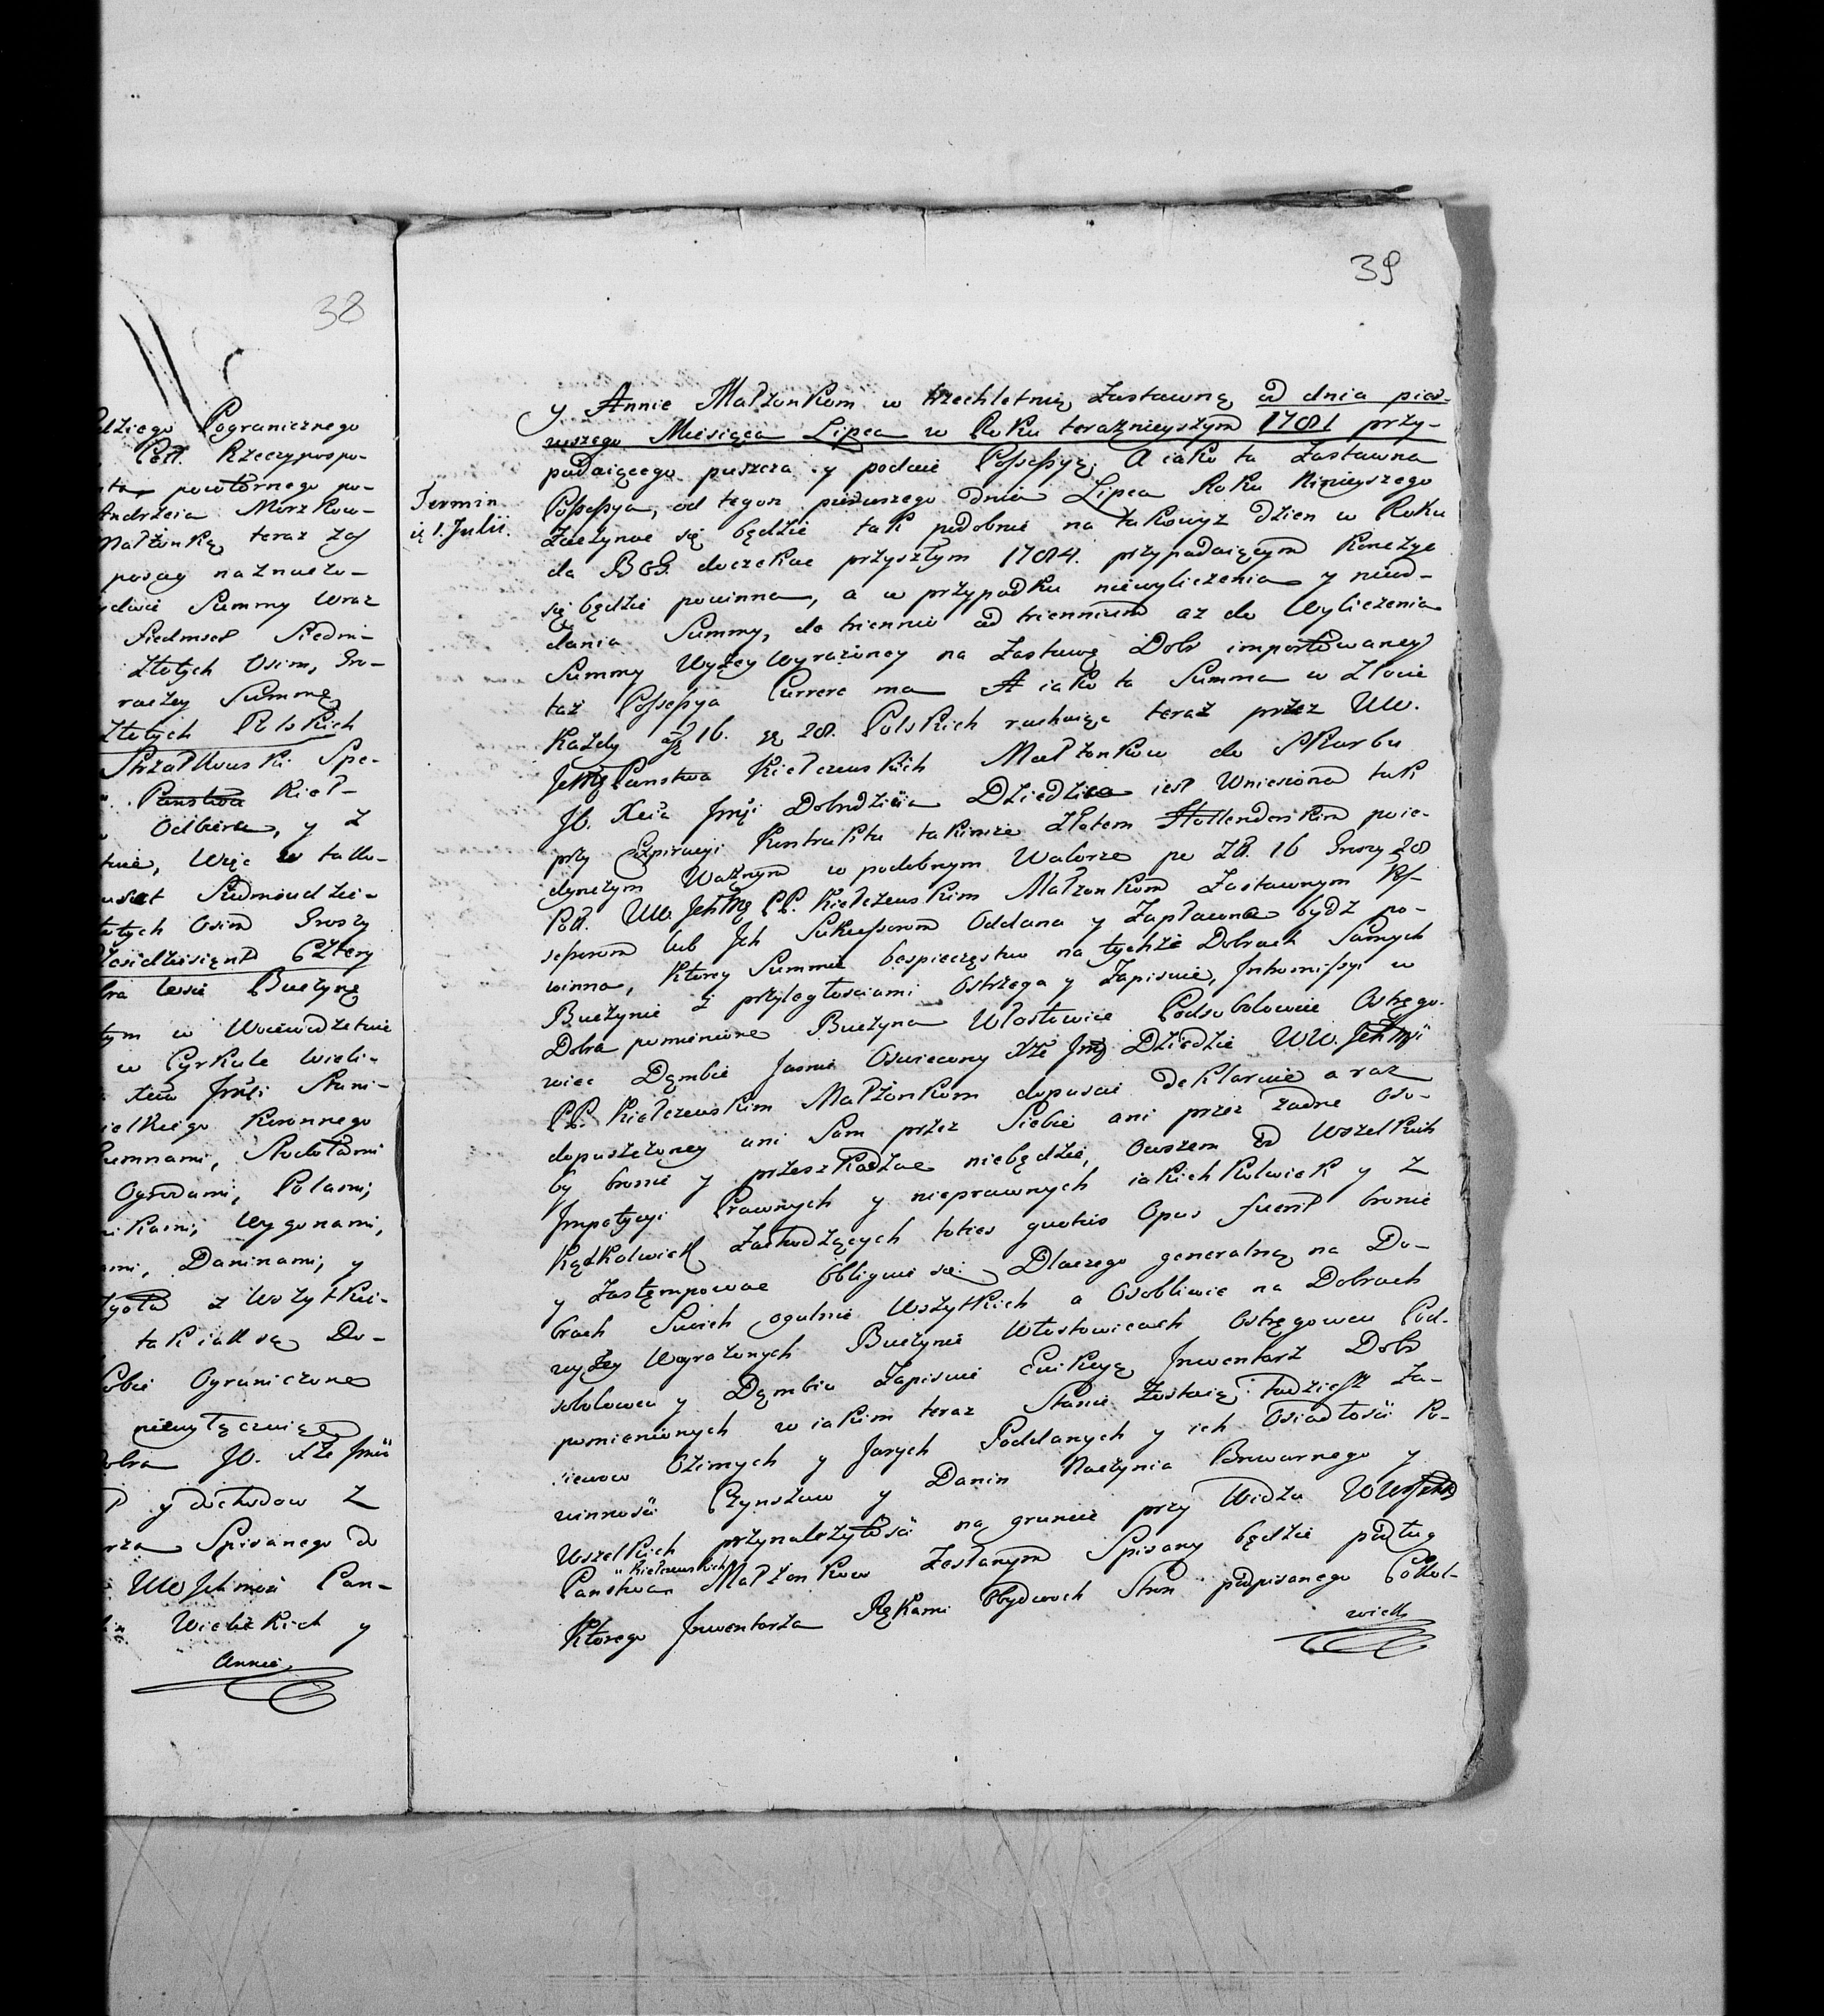 38
dziego Pogranicznego
Coll. Rzeczypospo-
powtornego po-
Andrzeia Morzkow-
Małżonkę teraz zaś
posag naznaczo-
Summy wraz
Siedmset Siedm-
Złotych Osim, Gro-
raczey Summę
Złotych Polskich
Strzałkowski Spe-
Państwa Kieł-
Odbiera, y z
Więc w tako-
Siedmdzie-
złotych Osim Groszy
dziesiąt Cztery
Buczynę
tym w Woiewodztwie
w Cyrkule Wieli-
Xcia Jmci Stani-
wielkiego Koronnego
Gumnami, Stodołami
Ogrodami, Polami,
Wygonami,
Daninami, y
z wszytkie-
tak iak są Do-
Sobie Ograniczone
niewyłączaiąc
Dobra JO. Xże Jmci
y dochodow z
Spisanego do
UUJchmciow Pan-
Wielickich y
Annie
39
y Annie Małżonkom w trzechletnię Zastawną od dnia pier-
wszego Miesiąca Lipca w Roku teraznieyszym 1781 przy-
padaiącego puszcza y podaie Possessyę. A iako ta Zastawna
Termin
1. Julii.
Possessya, od tegoż pierwszego dnia Lipca Roku Ninieyszego
Zaczynać się będzie tak podobnie na takowyż dzien w Roku
da BOG doczekać przyszłym 1784. przypadaiącym kończyć
się będzie powinna, a w przypadku niewyliczenia y nieod-
dania Summy, de triennio ad triennium aż do Wyliczenia
Summy Wyżey wyrażoney na Zastawę Dobr importowaney
taż Possessya Currere ma A iako ta Summa w Złocie
Każdy 16. gr 28. Polskich rachuiąc teraz przez UU.
Państwa Kiełczewskich Małżonkow do Skarbu
JO. Xcia Jmci Dobrodzieia Dziedzica iest Wniesiona tak
przy Expiracyi Kontraktu takimże Złotem Hollenderskim poie-
dynczym Ważnym w podobnym Walorze po Zł. 16 Groszy 28
Pol. UU. PP. Kiełczewskim Małżonkom Zastawnym Pos-
sessorom lub Jch Sukcessorom Oddana y Zapłacona bydz po-
winna, Ktorey Summie bespieczęstwo na tychże Dobrach Samych
Buczynie z przyległosciami Ostrzega y Zapisuie, Intromissyi w
Dobra pomienione Buczyna Włostowice Podsobolowie Ostręgo-
wiec Dąmbie Jasnie Oswiecony Xże Jmć Dziedzic WW.
PP. Kiełczewskim Małżonkom dopuscić deklaruie a raz
dopuszczoney ani Sam przez Siebie ani przez żadne Oso-
by bronić y przeszkadzać niebędzie, owszem od wszelkich
Jmpetycyi Prawnych y nieprawnych iakichkolwiek y z
Kądkolwiek Zachodzących toties quoties Opus fuerit bronić
y Zastempować Obliguie się. Dlaczego generalną na Do-
brach Swoich ogulnie Wszytkich a Osobliwie na Dobrach
wyżey Wyrażonych Buczynie Włostowicach Ostręgowcu Pod-
sobolowcu y Dąmbiu Zapisuie Ewikcyą Jnwentarz Dobr
pomienionych w iakim teraz Stanie Zostaią tudziesz Za-
siewow Ozimych y Jarych Poddanych y ich Osiadłosci Po-
winnosci Czynszow y Danin Naczynia Browarnego y
Wszelkich przynależytosci na gruncie przy Widzu
Państwa Kiełczewskich Małżonkow Zesłanym Spisany będzie podług
Ktorego Jnwentarza Rękami Obydwoch Stron podpisanego Cokol-
wiek